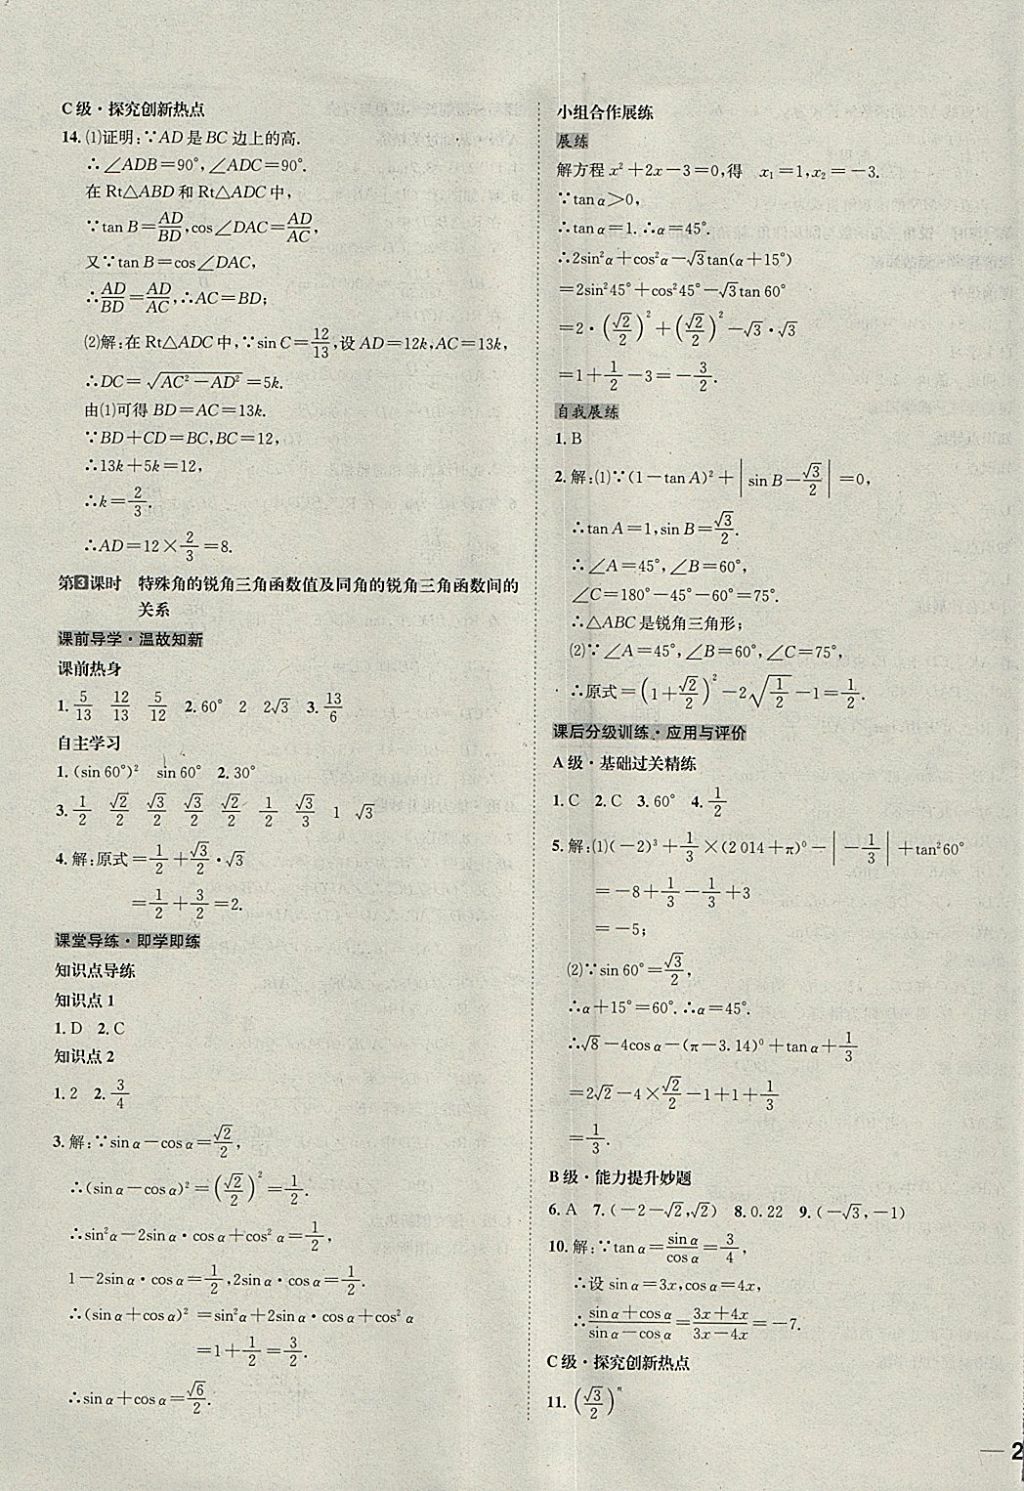 C级·探究创新热点
14.(1)证明:∵AD是BC边上的高.
∴∠ADB=90°,∠ADC=90°.
在Rt△ABD和Rt△ADC中,
∵tan B=AD/BD,cos∠DAC=AD/AC,
又∵tan B=cos∠DAC,
∴AD/BD=AD/AC,∴AC=BD;
(2)解:在Rt△ADC中,∵sin C=12/13,设AD=12k,AC=13k,
∴DC=√(AC²-AD²)=5k.
由(1)可得BD=AC=13k.
∵BD+CD=BC,BC=12,
∴13k+5k=12,
∴k=2/3.
∴AD=12×2/3=8.
第3课时 特殊角的锐角三角函数值及同角的锐角三角函数间的
关系
课前导学·温故知新
课前热身
1. 5/13 12/13 5/12 2.60° 2 2√3 3. 13/6
自主学习
1.(sin 60°)² sin 60° 2.30°
3. 1/2 √2/2 √3/2 √3/2 √2/2 1/2 √3/3 1 √3
4.解:原式=1/2+√3/2·√3
=1/2+3/2=2.
课堂导练·即学即练
知识点导练
知识点1
1.D 2.C
知识点2
1.2 2. 3/4
3.解:∵sin α-cos α=√2/2,
∴(sin α-cos α)²=(√2/2)²=1/2.
∴sin²α-2sin α·cos α+cos²α=1/2,
1-2sin α·cos α=1/2,2sin α·cos α=1/2.
∴(sin α+cos α)²=sin²α+2sin α·cos α+cos²α
=1+1/2=3/2.
∴sin α+cos α=√6/2.
小组合作展练
展练
解方程x²+2x-3=0,得 x₁=1,x₂=-3.
∵tan α>0,
∴tan α=1.∴α=45°.
∴2sin²α+cos²α-√3tan(α+15°)
=2sin²45°+cos²45°-√3tan 60°
=2·(√2/2)²+(√2/2)²-√3·√3
=1+1/2-3=-3/2.
自我展练
1.B
2.解:(1)∵(1-tan A)²+|sin B-√3/2|=0,
∴tan A=1,sin B=√3/2.
∴∠A=45°,∠B=60°,
∠C=180°-45°-60°=75°.
∴△ABC是锐角三角形;
(2)∵∠A=45°,∠B=60°,∠C=75°,
∴原式=(1+√2/2)²-2√(1/2)-1=1/2.
课后分级训练·应用与评价
A级·基础过关精练
1.C 2.C 3.60° 4. 1/2
5.解:(1)(-2)³+1/3×(2 014+π)⁰-|-1/3|+tan²60°
=-8+1/3-1/3+3
=-5;
(2)∵sin 60°=√3/2,
∴α+15°=60°.∴α=45°.
∴√8-4cos α-(π-3.14)⁰+tan α+1/3
=2√2-4×√2/2-1+1+1/3
=1/3.
B级·能力提升妙题
6.A 7.(-2-√2,√2) 8.0.22 9.(-√3,-1)
10.解:∵tan α=sin α/cos α=3/4,
∴设sin α=3x,cos α=4x,
∴(sin α+cos α)/(sin α-cos α)=(3x+4x)/(3x-4x)=-7.
C级·探究创新热点
11.(√3/2)ⁿ
— 2